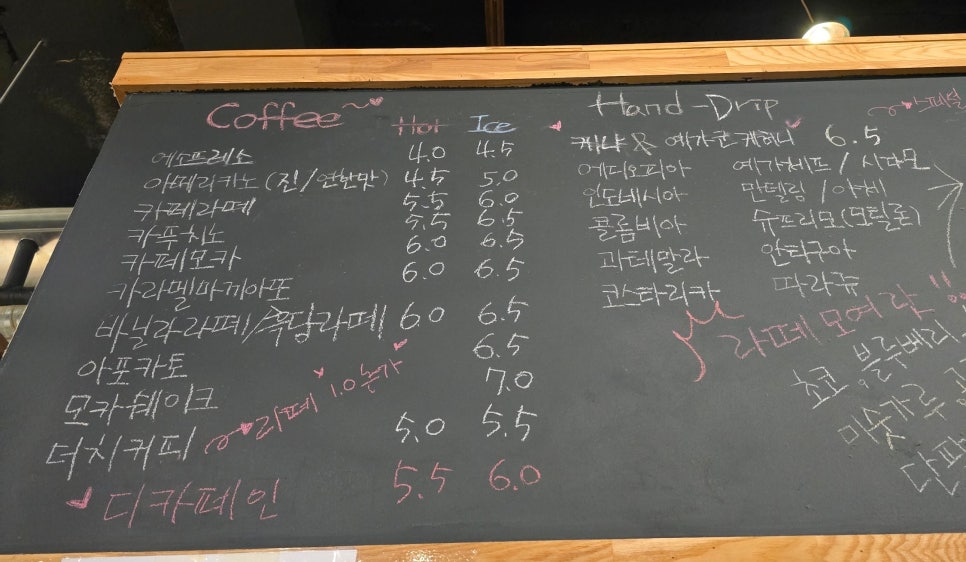 Coffee Hot Ice
에스프레소 4.0 4.5
아메리카노 (진/연한맛) 4.5 5.0
카페라떼 5.5 6.0
카푸치노 5.5 6.5
카페모카 6.0 6.5
카라멜마끼아또 6.0 6.5
바닐라라떼/흑당라떼 6.0 6.5
아포카토 6.5
모카쉐이크 7.0
더치커피 라떼 1.0 추가 5.0 5.5
디카페인 5.5 6.0
Hand-Drip
케냐 & 예가 6.5
에디오피아 예가체프 / 시다모
인도네시아 만델링 / 아비
콜롬비아 슈프리모(모틸론)
과테말라 안티구아
코스타리카 따라쥬
라떼 모여라!!
초코. 블루베리
미숫가루
단팥